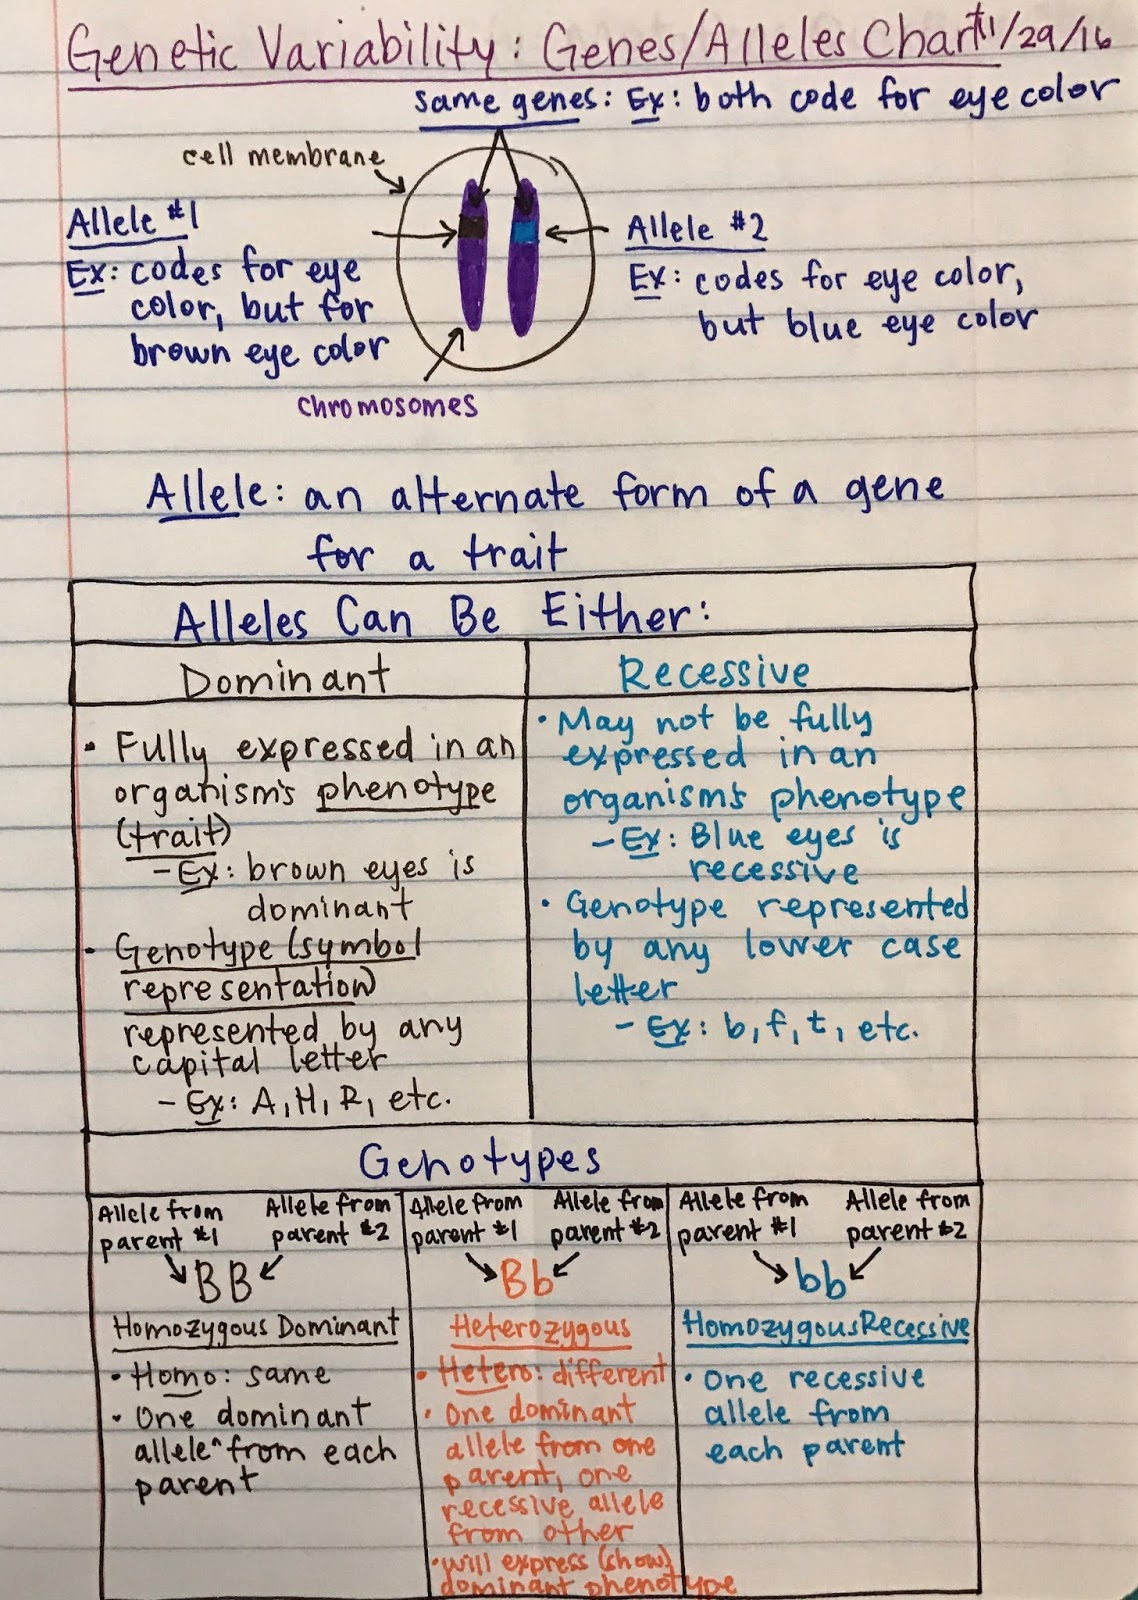 Genetic Variability: Genes/Alleles Chart 11/29/16
same genes: Ex: both code for eye color
cell membrane
Allele #1
Ex: codes for eye
color, but for
brown eye color
Allele #2
Ex: codes for eye color,
but blue eye color
chromosomes
Allele: an alternate form of a gene
for a trait
Alleles Can Be Either:
Dominant
• Fully expressed in an
organism's phenotype
(trait)
- Ex: brown eyes is
dominant
• Genotype (symbol
representation)
represented by any
capital letter
- Ex: A, H, R, etc.
Recessive
• May not be fully
expressed in an
organism's phenotype
- Ex: Blue eyes is
recessive
• Genotype represented
by any lower case
letter
- Ex: b, f, t, etc.
Genotypes
Allele from
parent #1
Allele from
parent #2
BB
Homozygous Dominant
• Homo: same
• One dominant
allele from each
parent
Allele from
parent #1
Allele from
parent #2
Bb
Heterozygous
• Hetero: different
• One dominant
allele from one
parent, one
recessive allele
from other
• will express (show)
dominant phenotype
Allele from
parent #1
Allele from
parent #2
bb
Homozygous Recessive
• One recessive
allele from
each parent